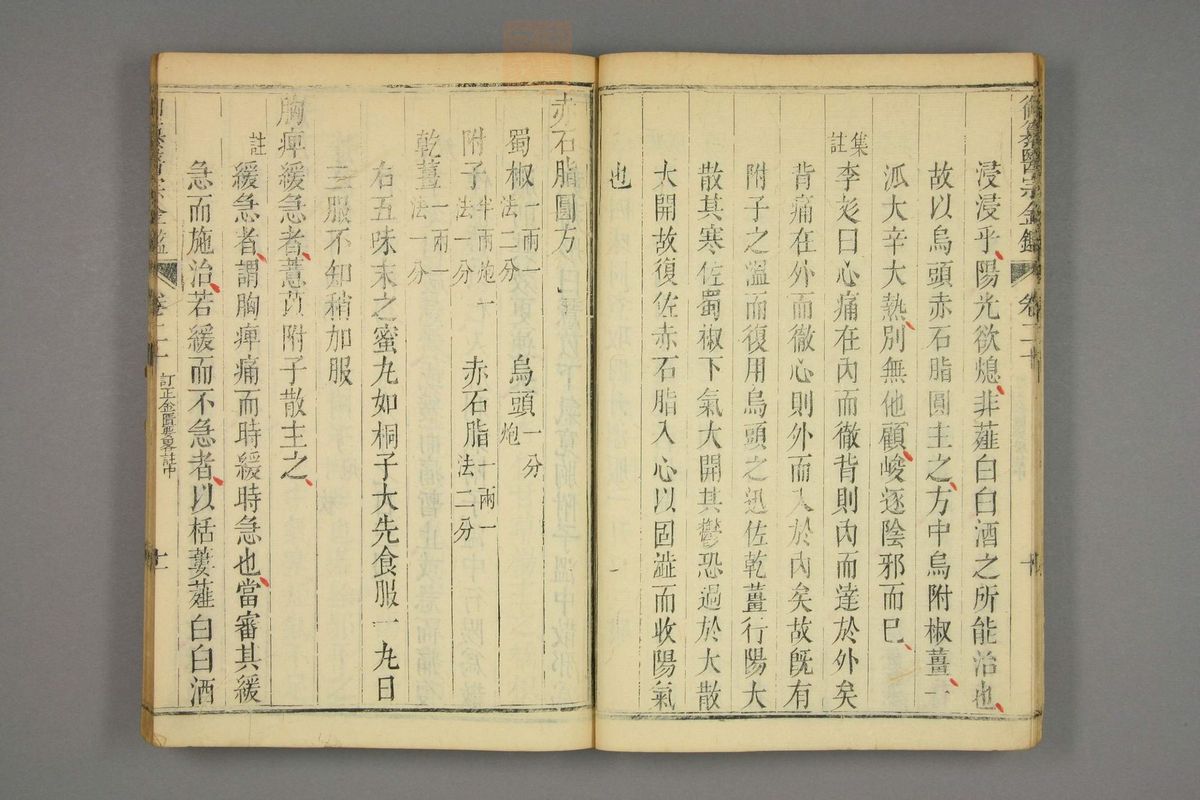 御纂醫宗金鑑
卷二十
十
浸浸乎陽光欲熄非薤白白酒之所能治也
故以烏頭赤石脂圓主之方中烏附椒薑一
派大辛大熱別無他顧峻逐陰邪而已
集註李彣曰心痛在內而徹背則內而達於外矣
背痛在外而徹心則外而入於內矣故既有
附子之溫而復用烏頭之迅佐乾薑行陽大
散其寒佐蜀椒下氣大開其鬱恐過於大散
大開故復佐赤石脂入心以固澁而收陽氣
也
赤石脂圓方
蜀椒一兩一法二分 烏頭一分炮
附子半兩炮一法一分 赤石脂一兩一法二分
乾薑一兩一法一分
右五味末之蜜丸如桐子大先食服一丸日
三服不知稍加服
胸痺緩急者薏苡附子散主之
註緩急者謂胸痺痛而時緩時急也當審其緩
急而施治若緩而不急者以栝蔞薤白白酒
卷二十
訂正金匱要畧註中
十一